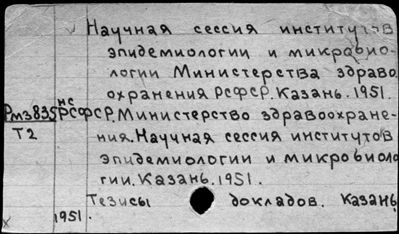 Научная сессия институтов
эпидемиологии и микробио-
логии Министерства здраво
охранения РСФСР. Казань. 1951.
нс
Рмз835 РСФСР. Министерство здравоохране-
Т2
ния. Научная сессия институтов
эпидемиологии и микробиоло
гии. Казань. 1951.
Тезисы докладов. Казань,
1951.
х